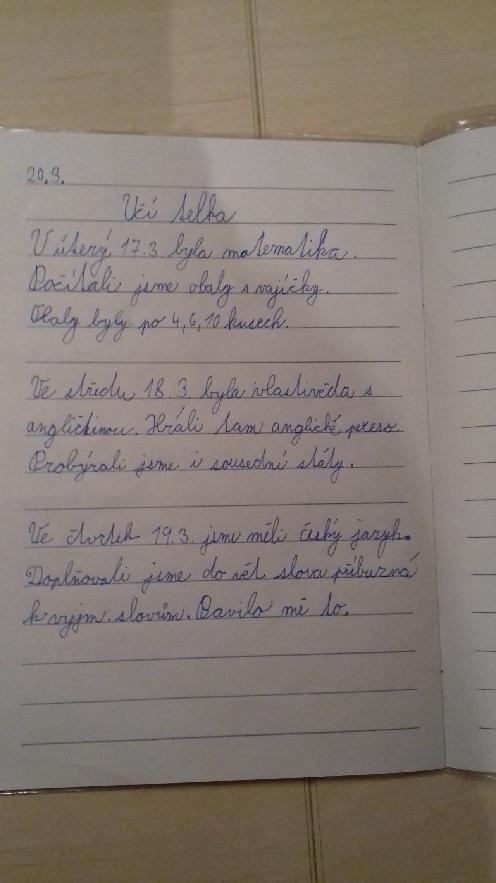 20.3.
Učí telka
V úterý 17.3. byla matematika.
Počítali jsme obaly s vajíčky.
Obaly byly po 4,6,10 kusech.
Ve středu 18.3. byla vlastivěda s
angličtinou. Hráli tam anglické pexeso.
Probýrali jsme i sousední státy.
Ve čtvrtek 19.3. jsme měli český jazyk.
Doplňovali jsme do vět slova příbuzná
k vyjm. slovům. Bavilo mě to.